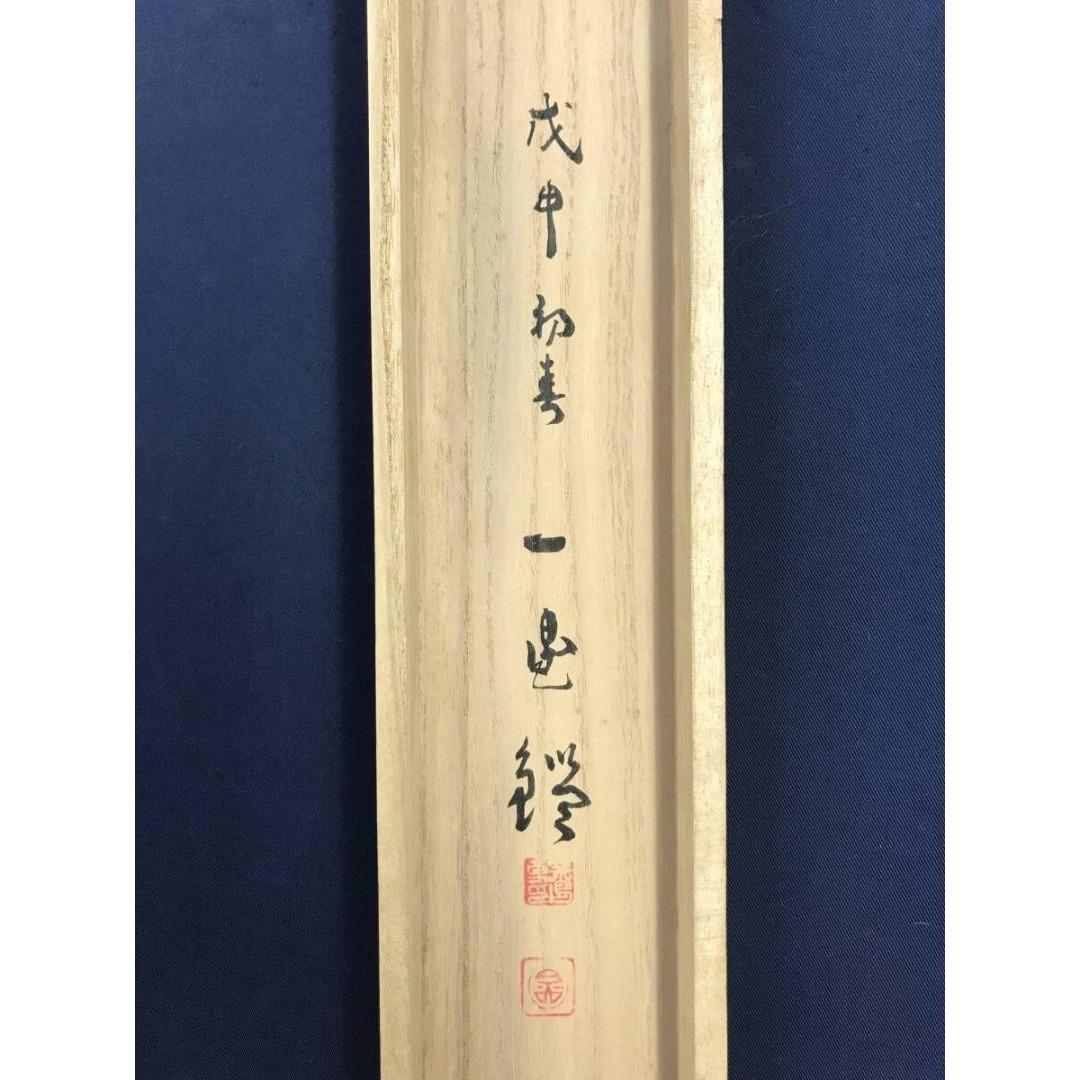 戊申初春 一 鑑